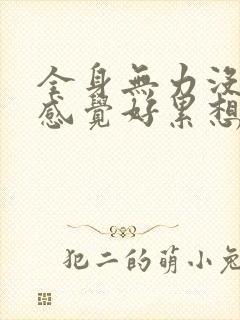 全身無力沒
感覺好累想
犯二的萌小兔